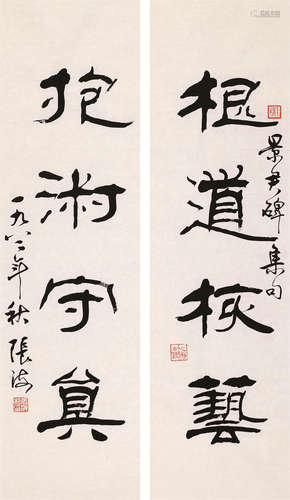 根道核藝
景君碑集句
抱淑守真
一九八二年秋張海